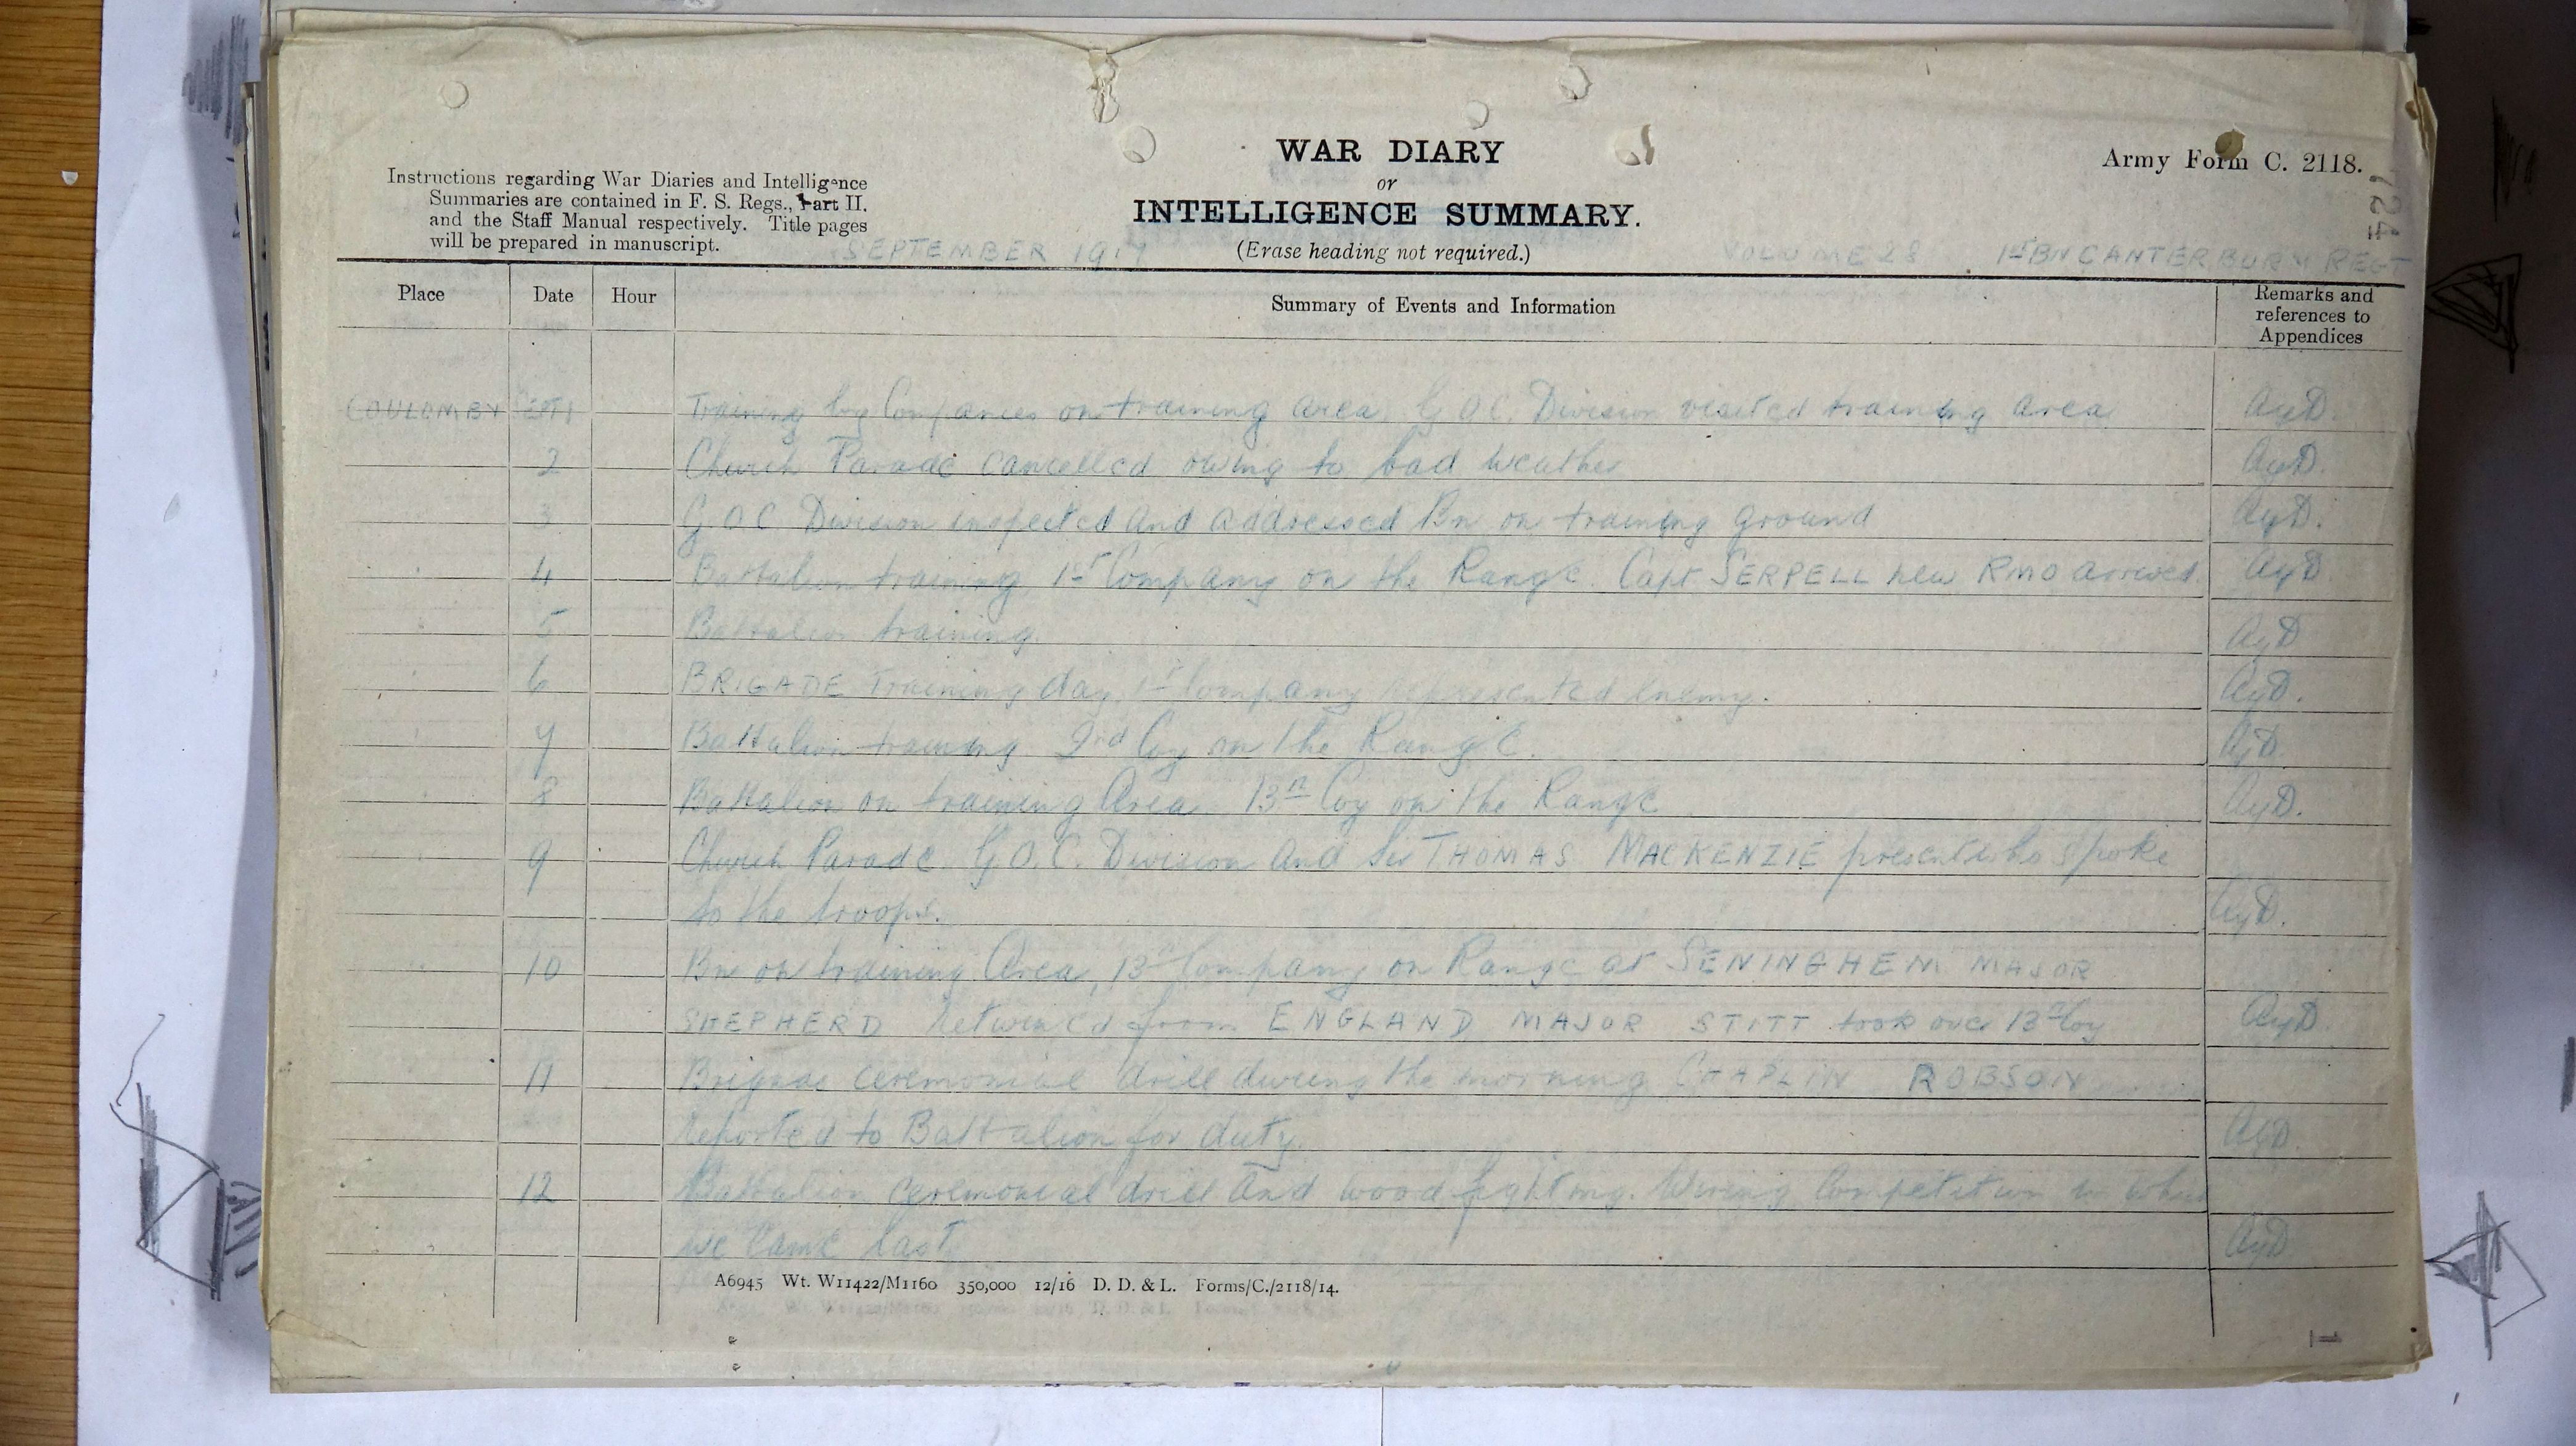 WAR DIARY
or
INTELLIGENCE SUMMARY.
(Erase heading not required.)
Army Form C. 2118.
Instructions regarding War Diaries and Intelligence
Summaries are contained in F. S. Regs., Part II.
and the Staff Manual respectively. Title pages
will be prepared in manuscript.
SEPTEMBER 1917 VOLUME 28 1st BN CANTERBURY REGT
Place Date Hour Summary of Events and Information Remarks and references to Appendices
COULOMBY SEPT 1 Training by Companies on training area. G.O.C. Division visited training area
2 Church Parade cancelled owing to bad weather
3 G.O.C. Division inspected and addressed Bn on training ground
4 Battalion training 1st Company on the Range. Capt SERPELL new RMO arrived.
5 Battalion training.
6 BRIGADE Training day. 1st Company represented enemy.
7 Battalion training 2nd Coy on the Range.
8 Battalion on training Area 13th Coy on the Range
9 Church Parade. G.O.C. Division and Sir THOMAS MACKENZIE present who spoke
to the troops.
10 Bn on training Area, 13th Company on Range at SENINGHEM MAJOR
SHEPHERD returned from ENGLAND MAJOR STITT took over 13th Coy
11 Brigade ceremonial drill during the morning CHAPLIN ROBSON
reported to Battalion for duty.
12 Battalion ceremonial drill and wood fighting. Wiring Competition in which
we came last
A6945 Wt. W11422/M1160 350,000 12/16 D. D. & L. Forms/C./2118/14.
1